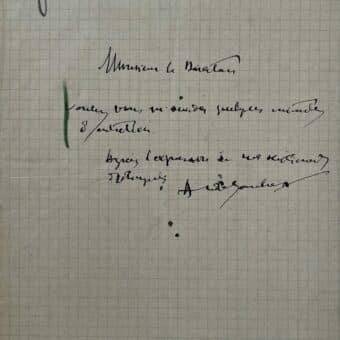 Monsieur le Directeur
voulez vous m'accorder quelques minutes
d'entretien
Agréez l'expression de mes sentiments
distingués